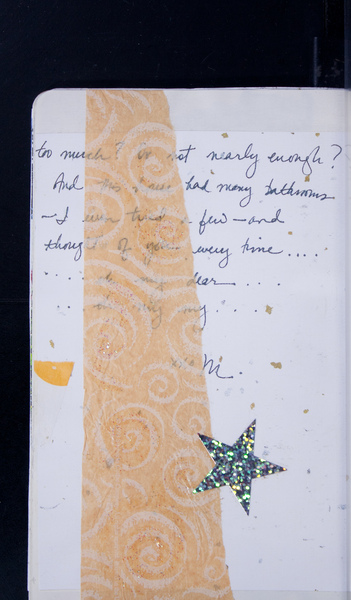 too much? Or not nearly enough?
And this place had many bathrooms
— I even tried a few — and
thought of you every time ....
.... my dear ....
.... my ....
M.